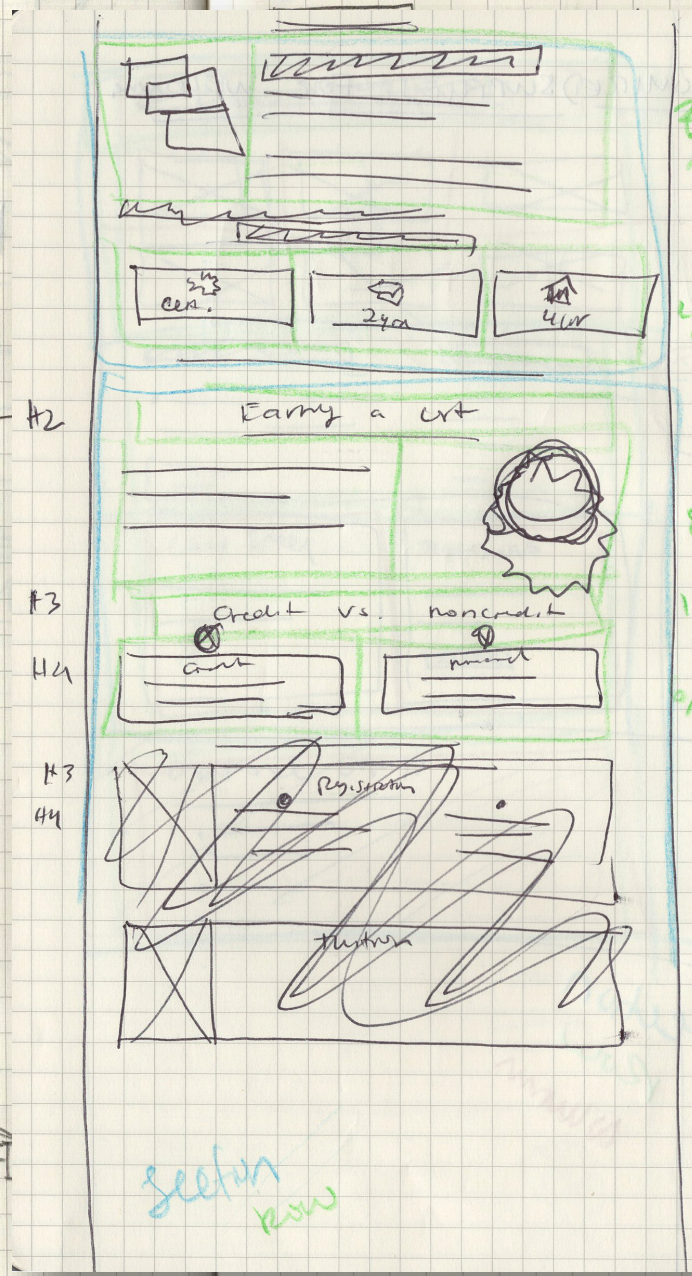 Cert.
2 yr
4 yr
H2
Earning a cert
H3
Credit vs. noncredit
H4
Credit
noncredit
H3
Registration
H4
Tuition
Section
Row